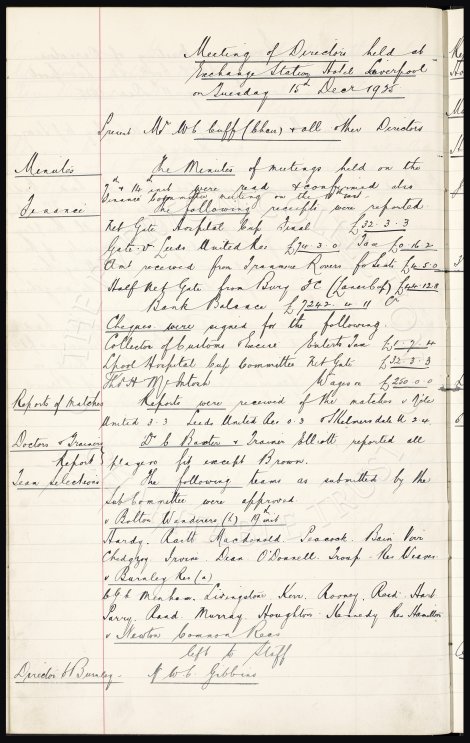 Meeting of Directors held at
Exchange Station Hotel Liverpool
on Tuesday 15th Decr 1925
Present Mr W C Cuff (Chair) & all other Directors
Minutes
The Minutes of meetings held on the
7th & 14th inst were read & confirmed also
Finance Committee meeting on the inst
Finance
The following receipts were reported
Net Gate Hospital Cup Final £32. 3. 3
Gate v Leeds United Res £74. 3. 0 Tax £0. 16. 2
Amt received from Tranmere Rovers for Seats £4. 5. 0
Half Net Gate from Bury FC (Lancs Cup) £44. 12. 8
Bank Balance £7242. 4. 11 Cr
Cheques were signed for the following.
Collector of Customs Excise Enterts Tax
Lpool Hospital Cup Committee Net Gate £32. 3. 3
Thos H McIntosh Wages £250. 0. 0
Reports of Matches
Reports were received of the matches v Notts
United 3-3 Leeds United Res 0.3 & Skelmersdale U 2.4.
Doctors & Trainers
Report
Dr C Baxter & Trainer Elliott reported all
players fit except Brown.
Team Selections
The following teams as submitted by the
Sub Committee were approved.
v Bolton Wanderers (h) 19th inst
Hardy. Raitt Macdonald. Peacock. Bain Virr
Chedgzoy. Irvine. Dean. O'Donnell. Troup. Res Weaver
v Burnley Res (a)
Menham. Livingstone. Kerr. Rooney. Reid. Hart.
Parry. Rand. Murray. Houghton. Kennedy Res Hamilton
v Newton Common Recs
left to Staff
Director to Burnley. Mr W C Gibbins